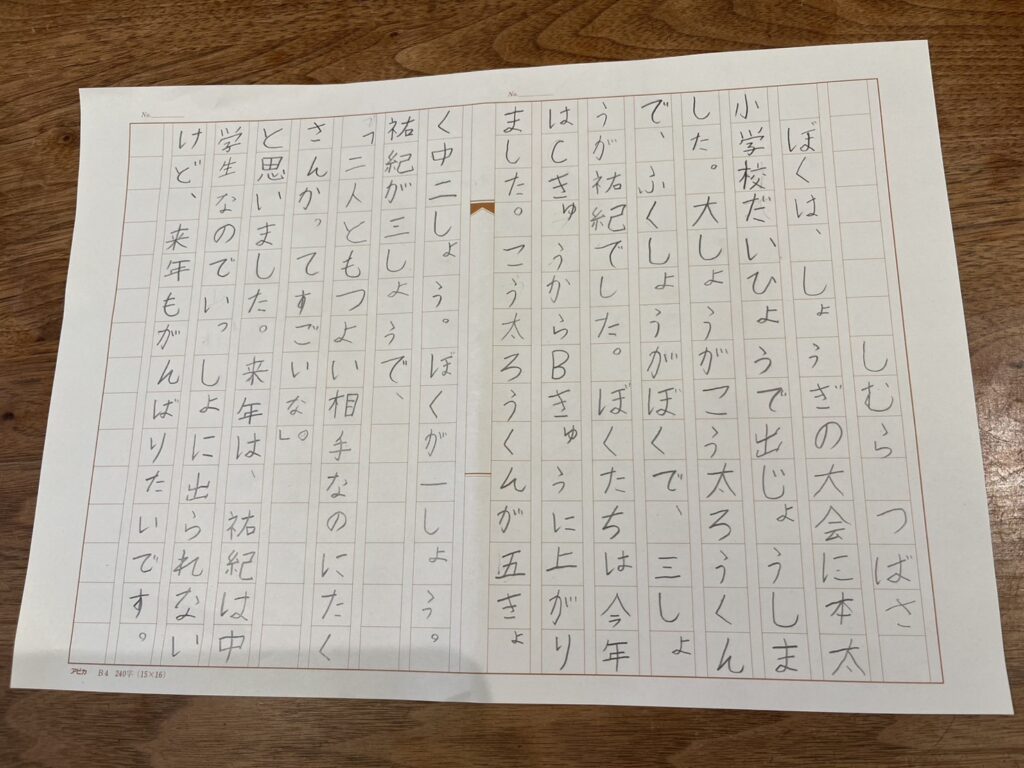 No.
No.
しむら　つばさ
ぼくは、しょうぎの大会に本太
小学校だいひょうで出じょうしま
した。大しょうがこう太ろうくん
で、ふくしょうがぼくで、三しょ
うが祐紀でした。ぼくたちは今年
はCきゅうからBきゅうに上がり
ました。こう太ろうくんが五きょ
く中二しょう。ぼくが一しょう。
祐紀が三しょうで、
「二人ともつよい相手なのにたく
さんかってすごいな」。
と思いました。来年は、祐紀は中
学生なのでいっしょに出られない
けど、来年もがんばりたいです。
アピカ B4 240字 (15×16)